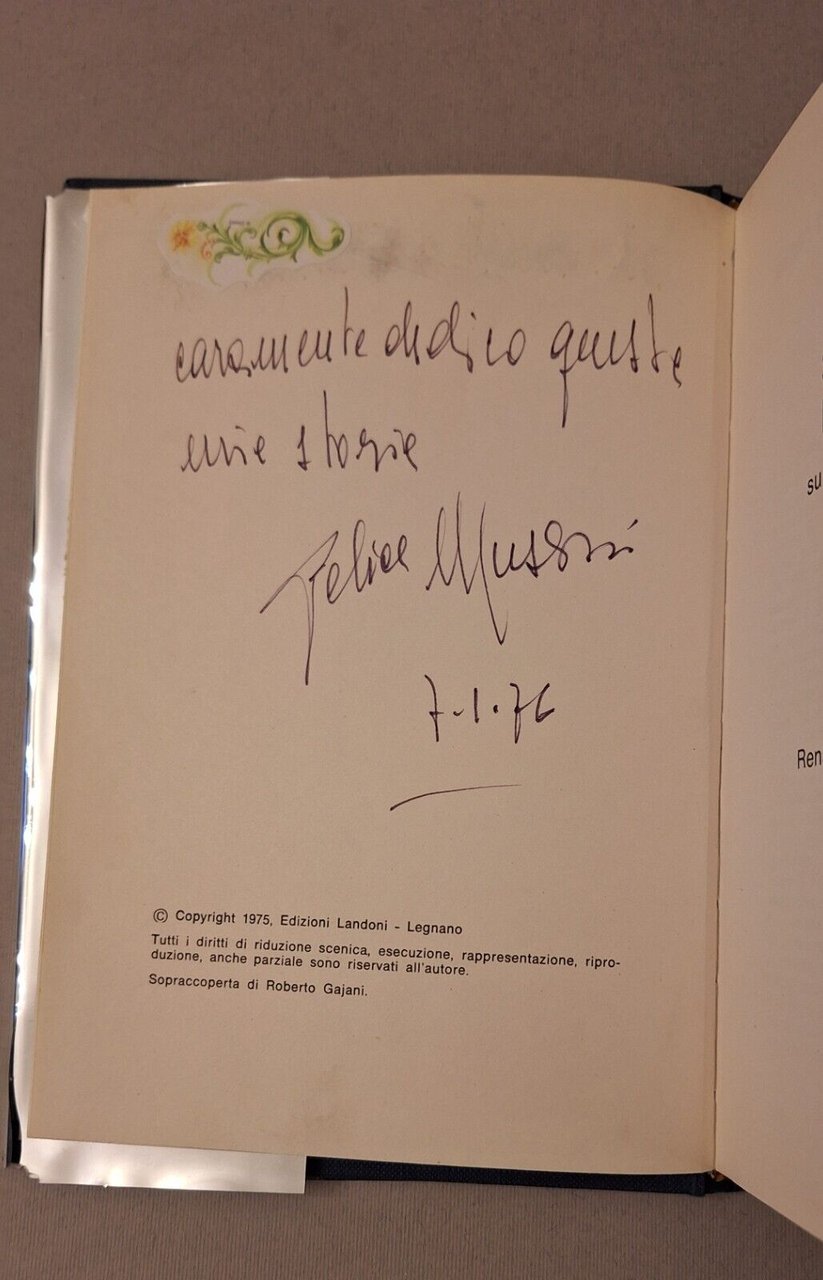 caramente dedico queste
mie storie
Felice Musazzi
7.1.76
© Copyright 1975, Edizioni Landoni - Legnano
Tutti i diritti di riduzione scenica, esecuzione, rappresentazione, ripro-
duzione, anche parziale sono riservati all'autore.
Sopraccoperta di Roberto Gajani.
su
Ren